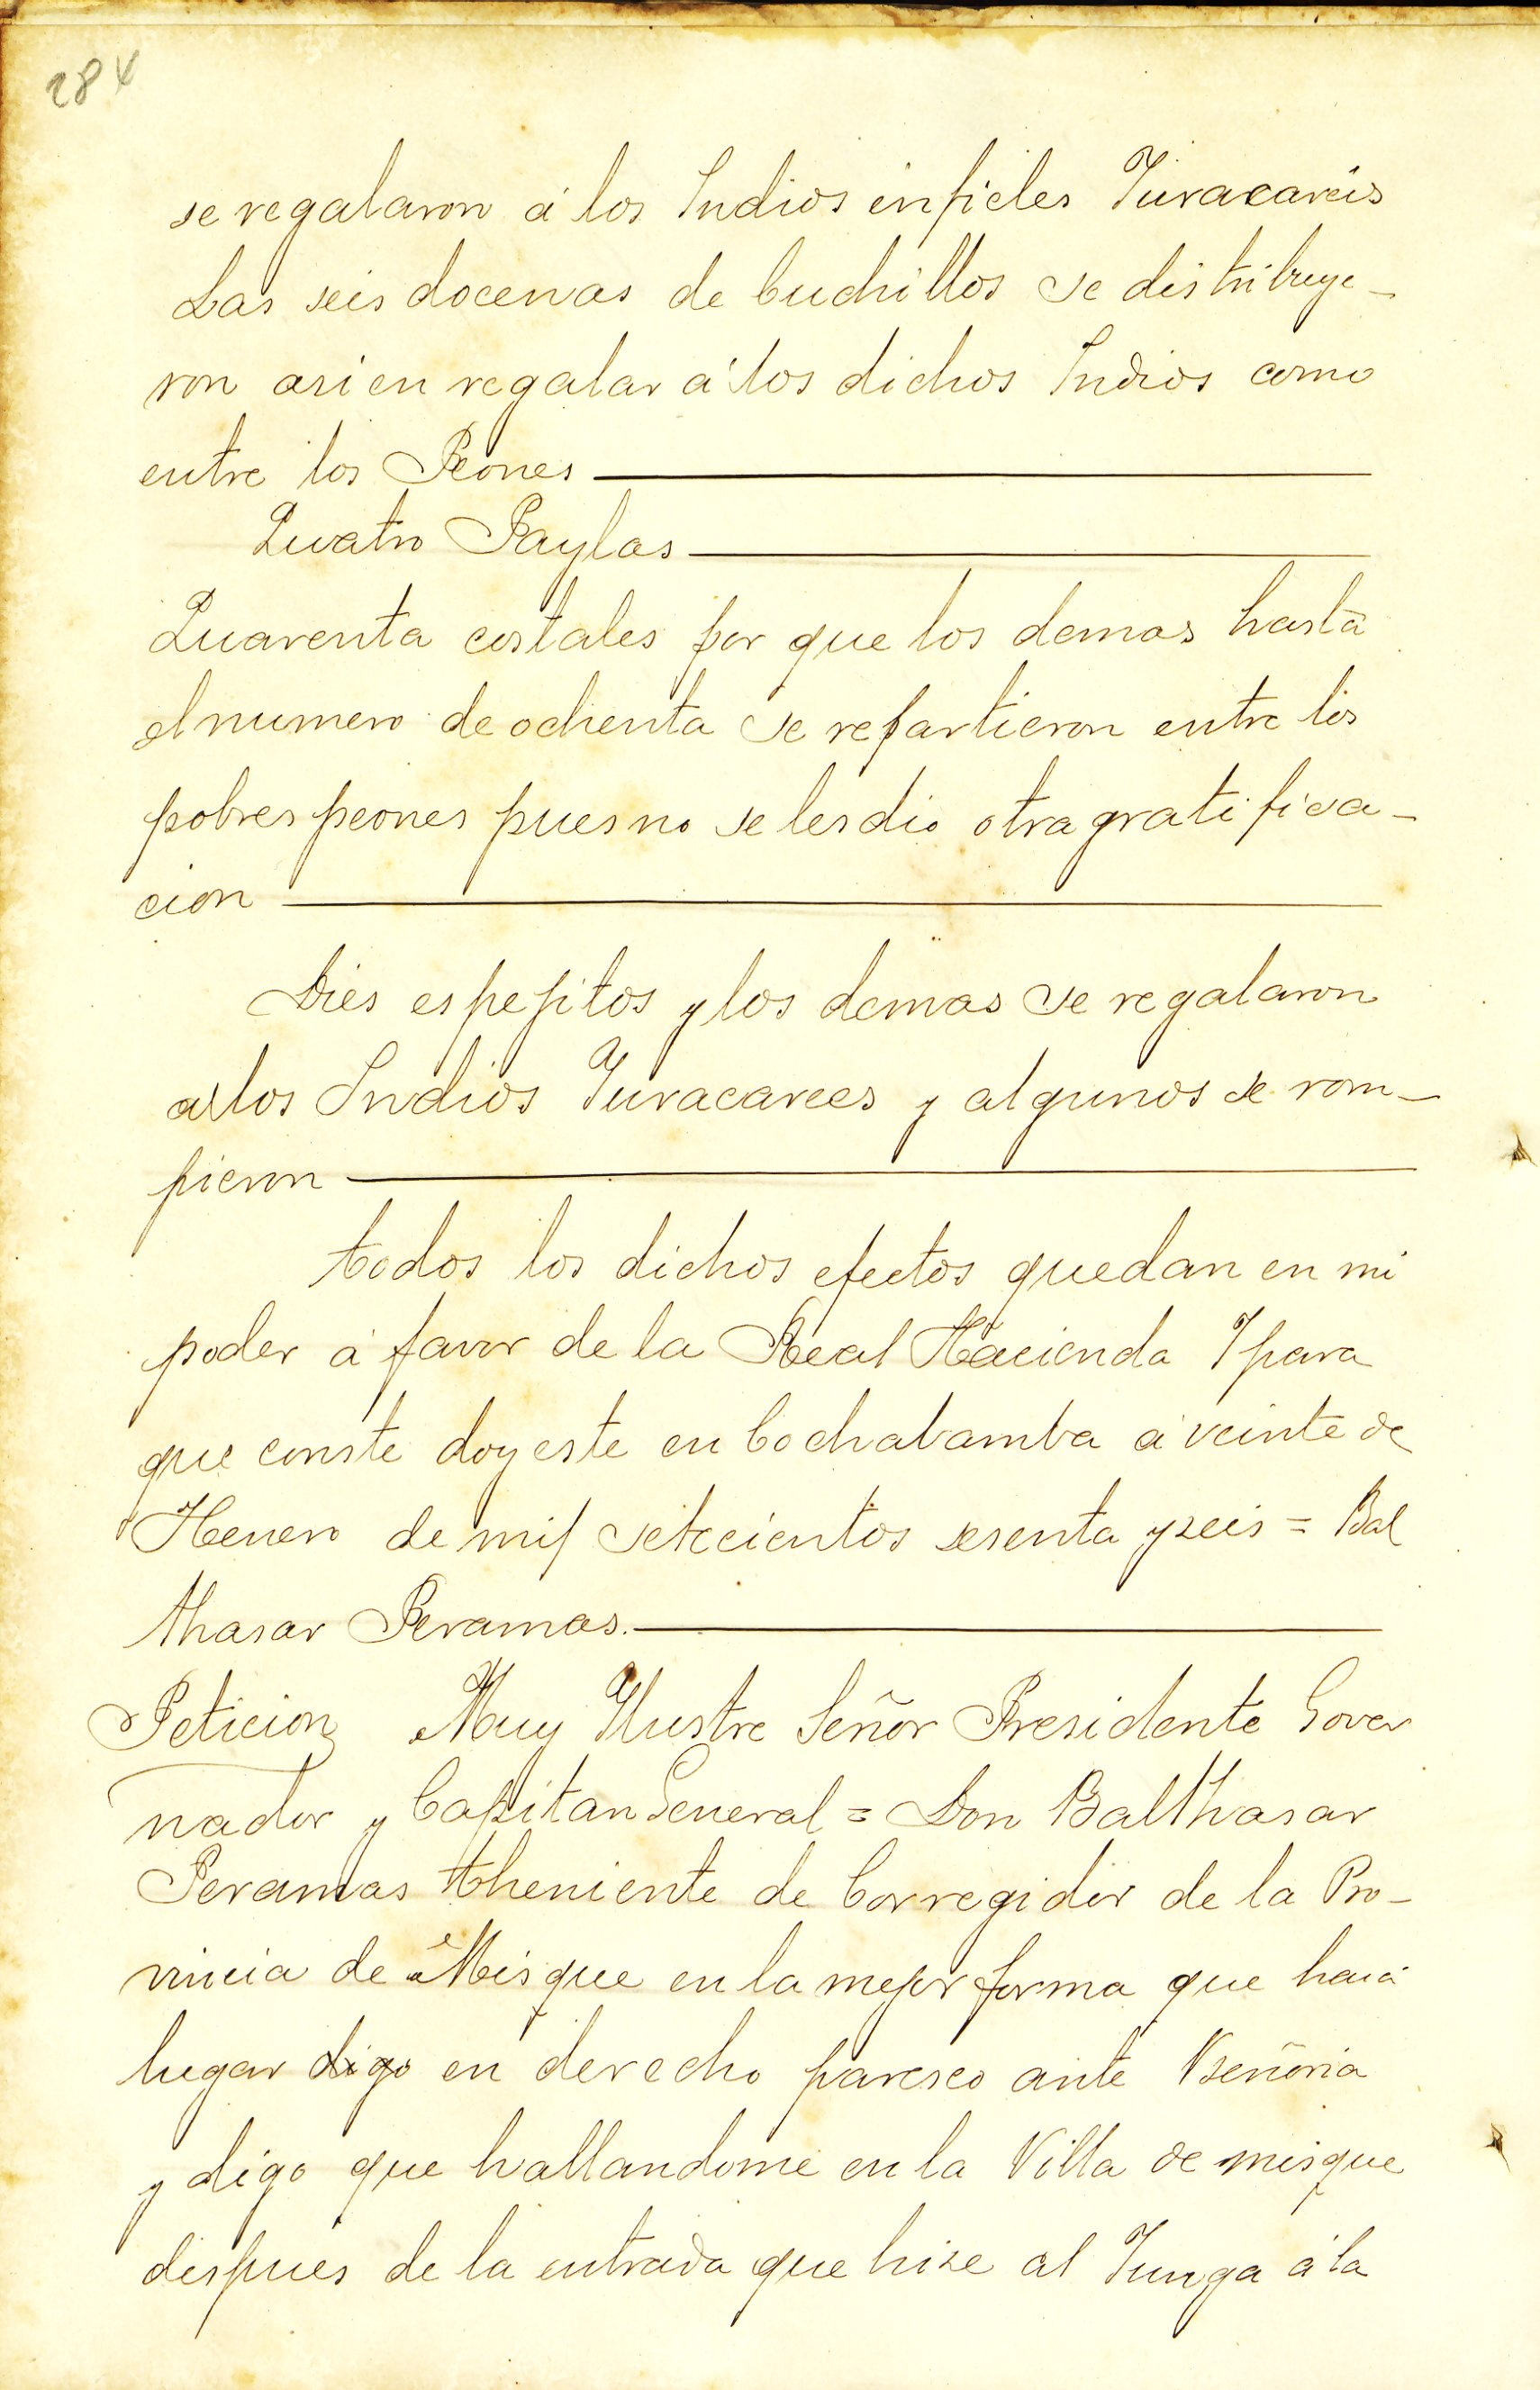 284
se regalaron á los Indios infieles Yuracareis
Las seis docenas de Cuchillos se distribuye-
ron asi en regalar a los dichos Indios como
entre los Peones
Quatro Paylas
Quarenta costales por que los demas hasta
el numero de ochenta se repartieron entre los
pobres peones pues no se les dio otra gratifica-
cion
Dies espejitos y los demas se regalaron
a los Indios Yuracarees y algunos se rom-
pieron
todos los dichos efectos quedan en mi
poder á favor de la Real Hacienda Y para
que conste doy este en Cochabamba á veinte de
Henero de mil setecientos sesenta y seis = Bal
thasar Peramas.
Peticion Muy Ylustre Señor Presidente Gover
nador y Capitan General = Don Balthasar
Peramas theniente de Corregidor de la Pro-
vincia de Misque en la mejor forma que haia
lugar digo en derecho paresco ante Vseñoria
y digo que hallandome en la Villa de misque
despues de la entrada que hise al Yunga á la